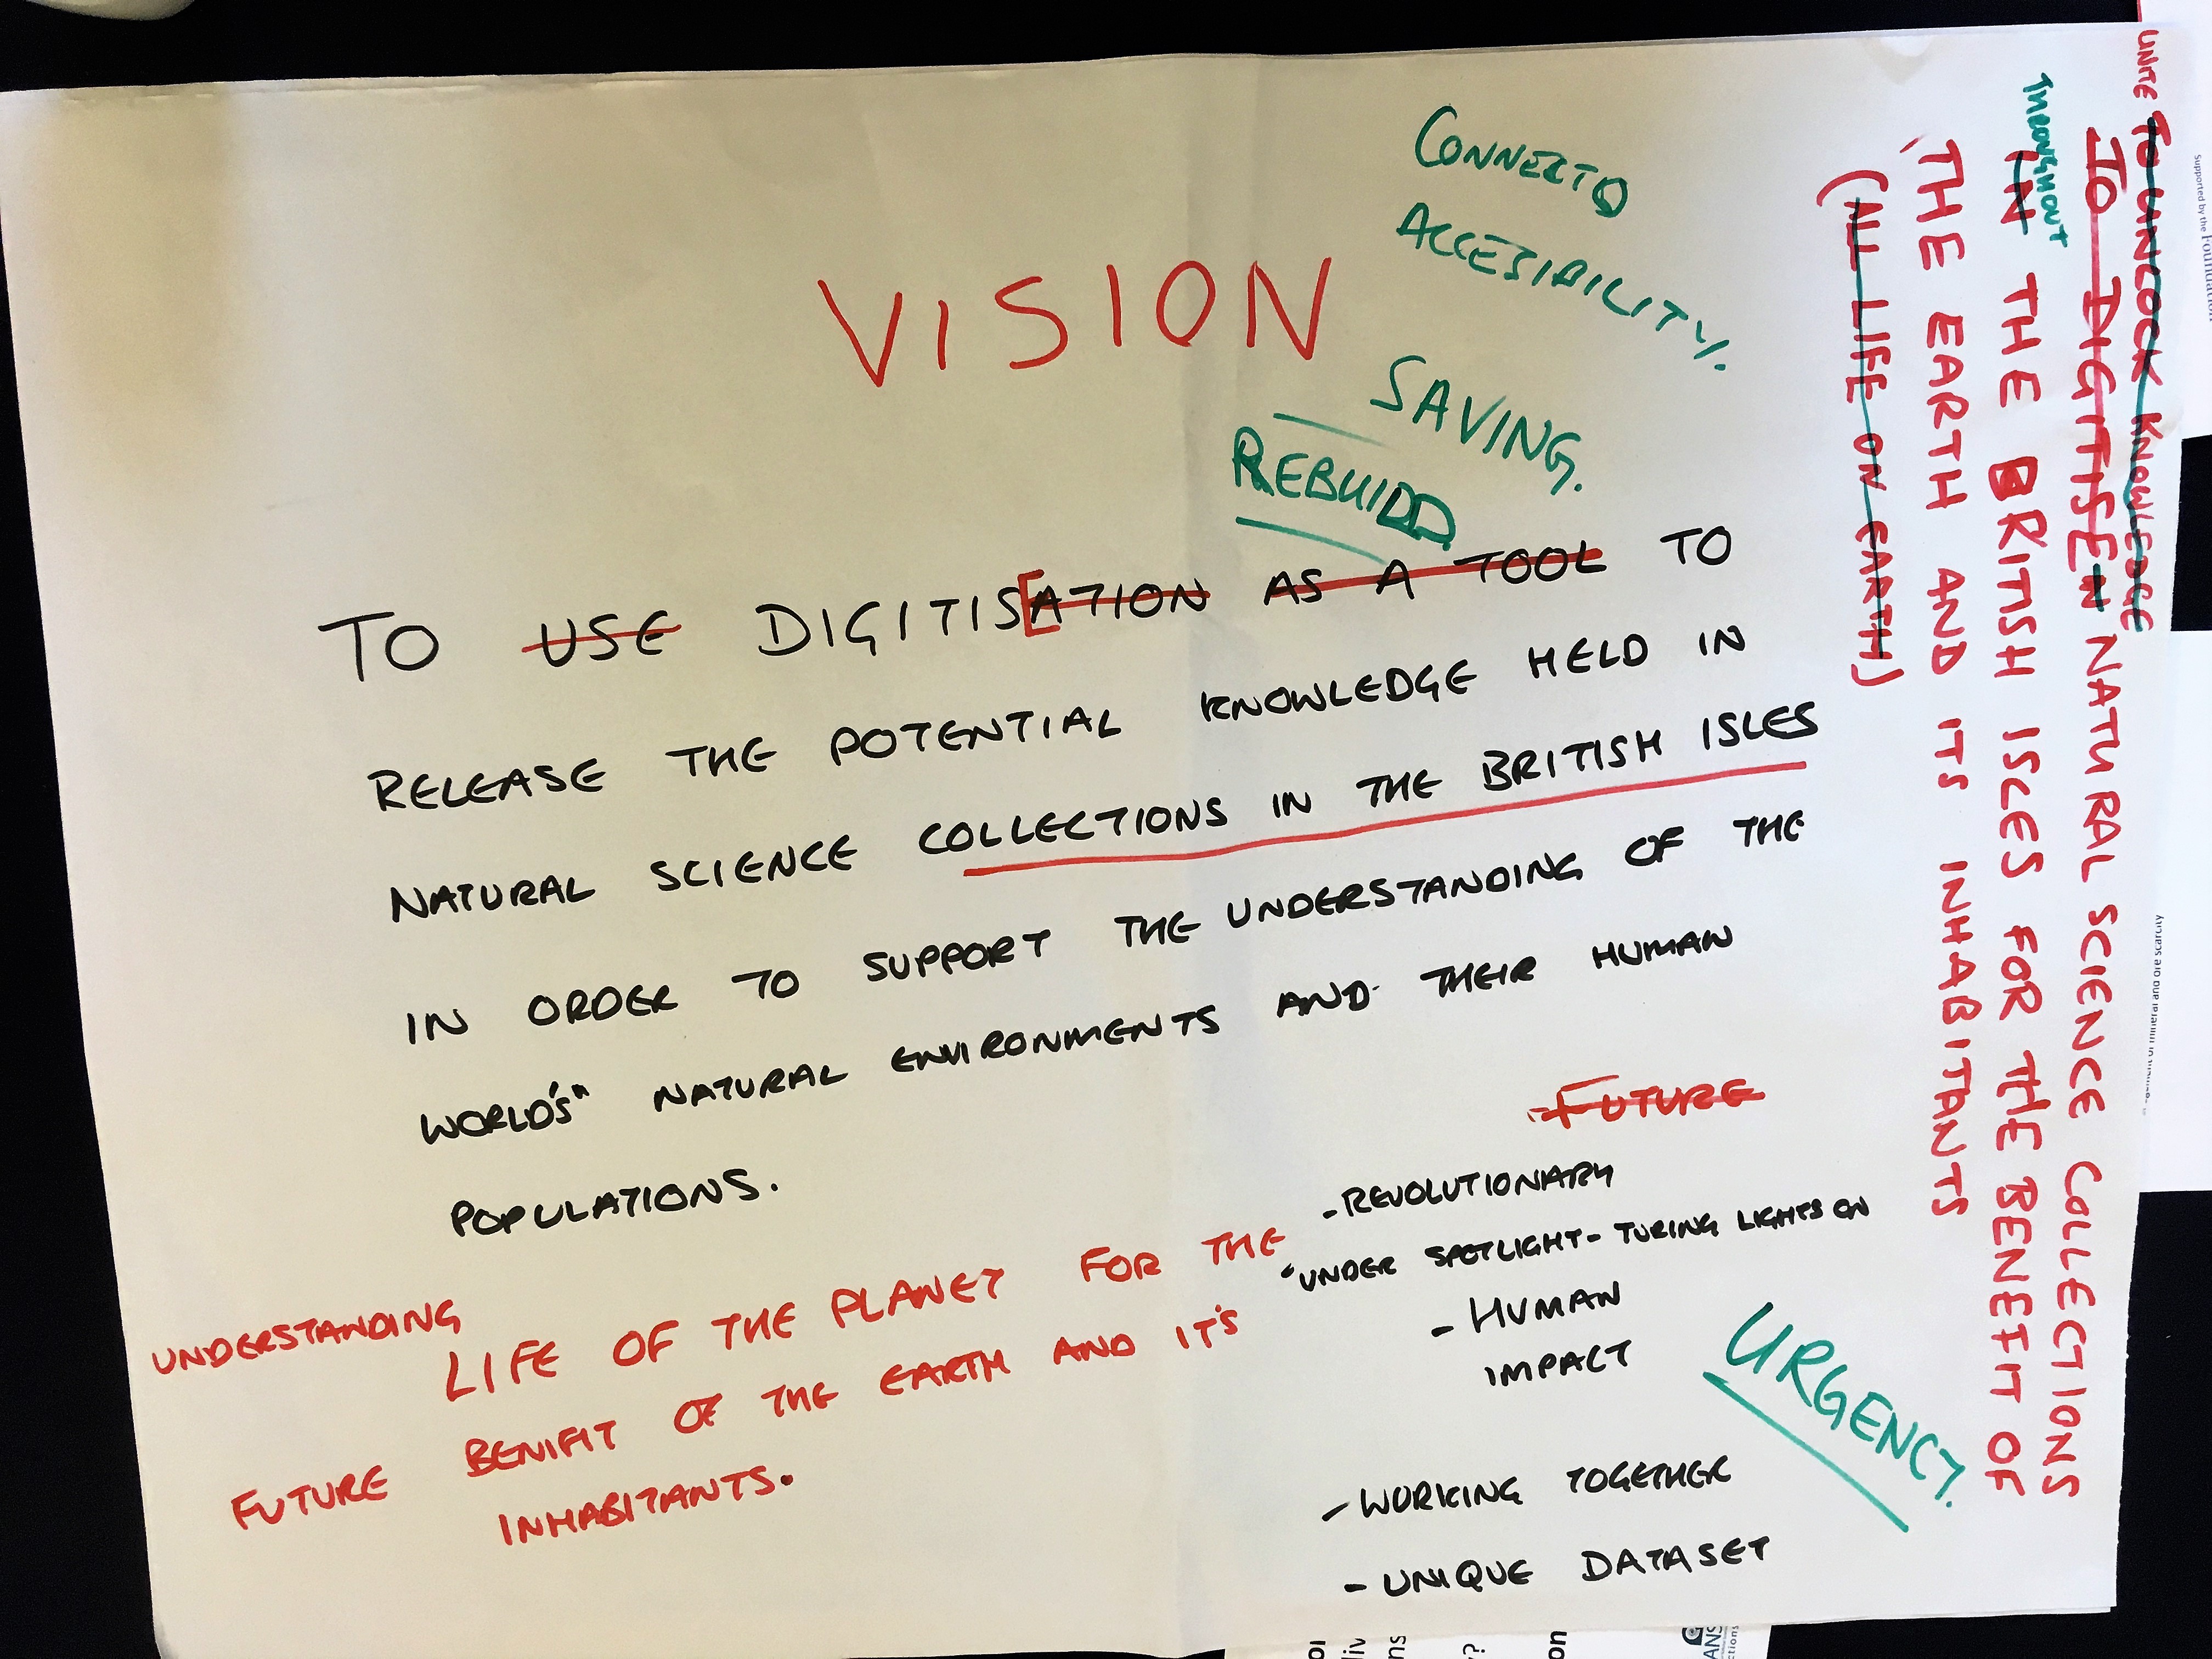 VISION
CONNECTD
ACCESIBILITY.
SAVING.
REBUIDD
TO USE DIGITISEATION AS A TOOL TO
RELEASE THE POTENTIAL KNOWLEDGE HELD IN
NATURAL SCIENCE COLLECTIONS IN THE BRITISH ISLES
IN ORDER TO SUPPORT THE UNDERSTANDING OF THE
WORLD'S" NATURAL ENVIRONMENTS AND THEIR HUMAN
POPULATIONS.
UNDERSTANDING
LIFE OF THE PLANET FOR THE
FUTURE BENIFIT OF THE EARTH AND IT'S
INHABITANTS.
- FUTURE
- REVOLUTIONARY
"UNDER SPOTLIGHT - TURING LIGHTS ON
- HUMAN
IMPACT
- WORKING TOGETHER
- UNIQUE DATASET
URGENCY.
UNITE TO UNLOCK KNOWLEDGE
TO DIGITISE NATURAL SCIENCE COLLECTIONS
THROUGHOUT
IN THE BRITISH ISLES FOR THE BENEFIT OF
THE EARTH AND ITS INHABITANTS
(ALL LIFE ON EARTH)
Supported by the Foundation
mineral and ore scarcity